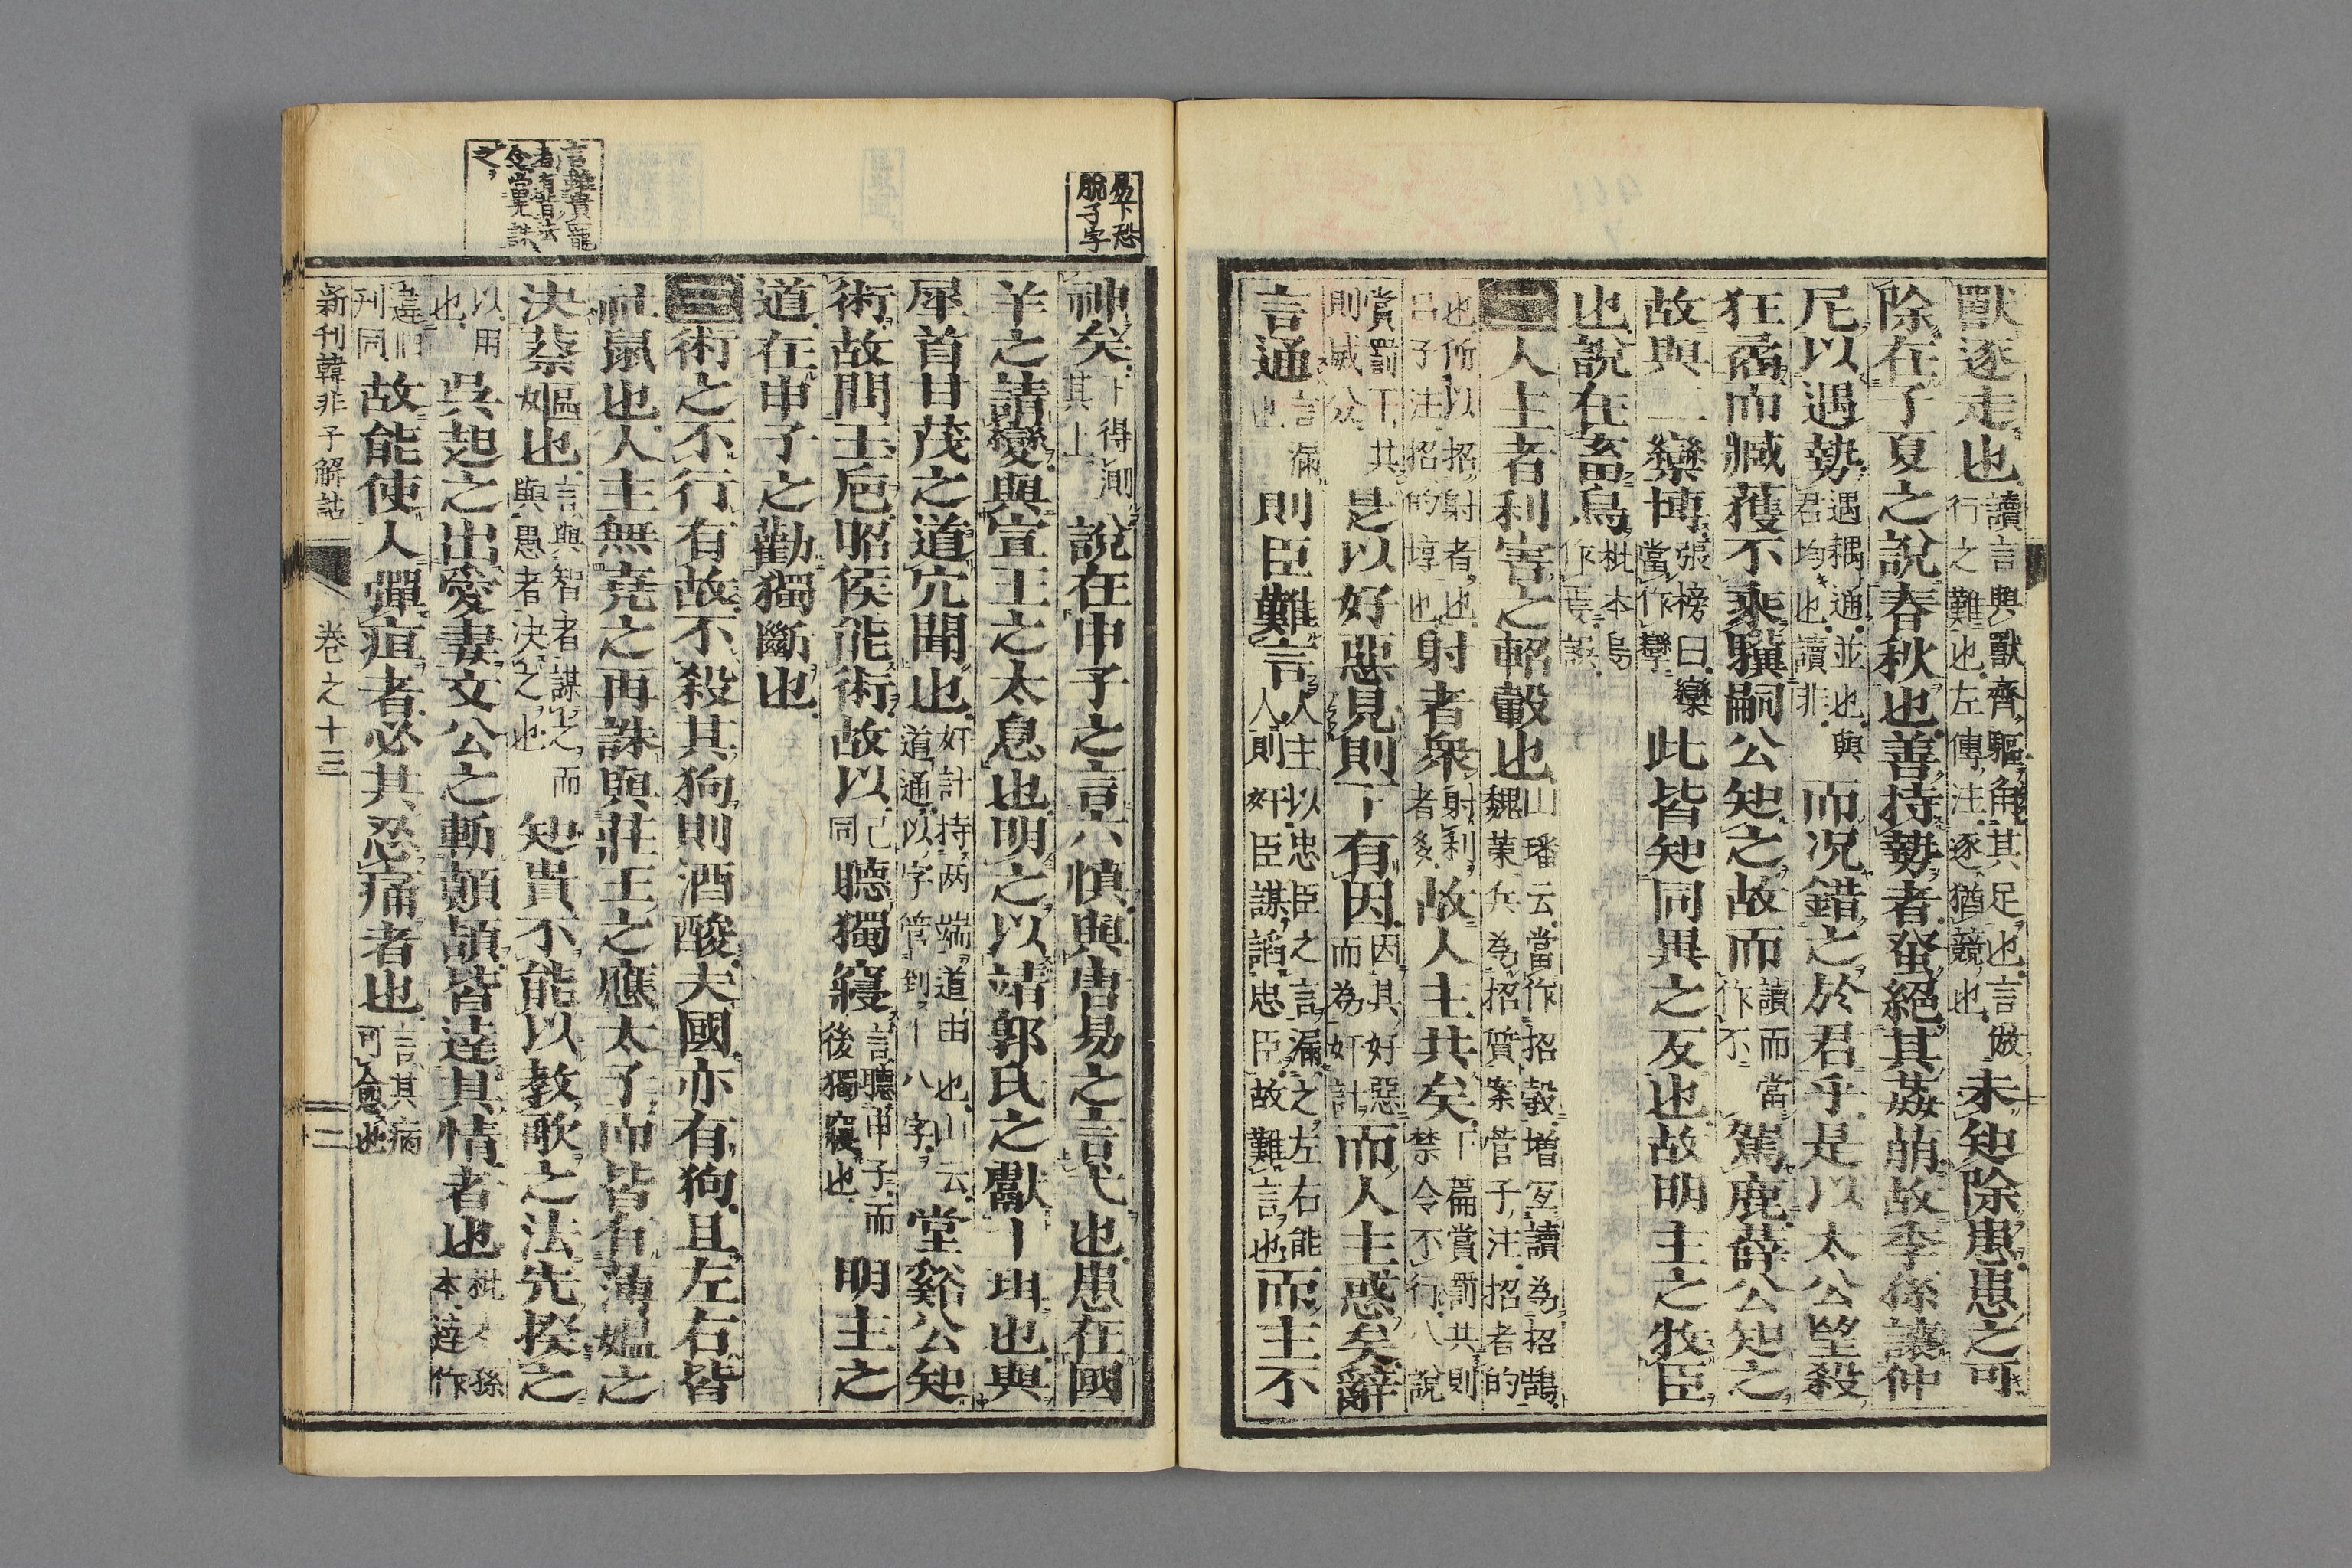 獸逐走也讀言與獸齊驅角其足也言倣行之難也左傳注逐猶競也未知除患患之可
除在子夏之說春秋也善持勢者蚤絕其姦萌故季孫讓仲
尼以遇勢遇耦通並也與君均也讀非而况錯之於君乎是以太公望殺
狂矞而臧獲不乘驥嗣公知之故而讀而當作不駕鹿薛公知之
故與二欒博張榜曰欒當作孿此皆知同異之反也故明主之牧臣
也說在畜烏枇本烏作焉誤
二人主者利害之軺轂也山璠云當作招彀增冱讀為招鵠魏策兵為招質案菅子注招者的
也所以招射者也呂子注招的埻也射者衆射利者多故人主共矣下篇賞罰共則禁令不行八說
賞罰下共則威分是以好惡見則下有因因其好惡而為奸計而人主惑矣辭
言通言漏也則臣難言人主以忠臣之言漏之左右能人則奸臣謀謟忠臣故難言也而主不
神矣下得測其上說在申子之言六慎與唐易之言弋也患在國
羊之請變與宣王之太息也明之以靖郭氏之獻十珥也與
犀首甘茂之道穴聞也奸計持两端道由也山云道通以字管到十八字堂谿公知
術故問玉巵昭侯能術故以己同聽獨寢言聽申子而後獨寢也明主之
道在申子之勸獨斷也
三術之不行有故不殺其狗則酒酸夫國亦有狗且左右皆
社鼠也人主無堯之再誅與莊王之應太子而皆有薄媼之
決蔡嫗也言與智者謀之而與愚者決之也知貴不能以敎歌之法先揆之
以用也吳起之出愛妻文公之斬顛頡皆達其情者也枇本孫本達作
違旧刊同故能使人彈疽者必其忍痛者也言其病可愈也
新刊韓非子解詁　卷之十三　二
易下恐
脫子字
言雖貴寵
者有皆法
令當見誅
之